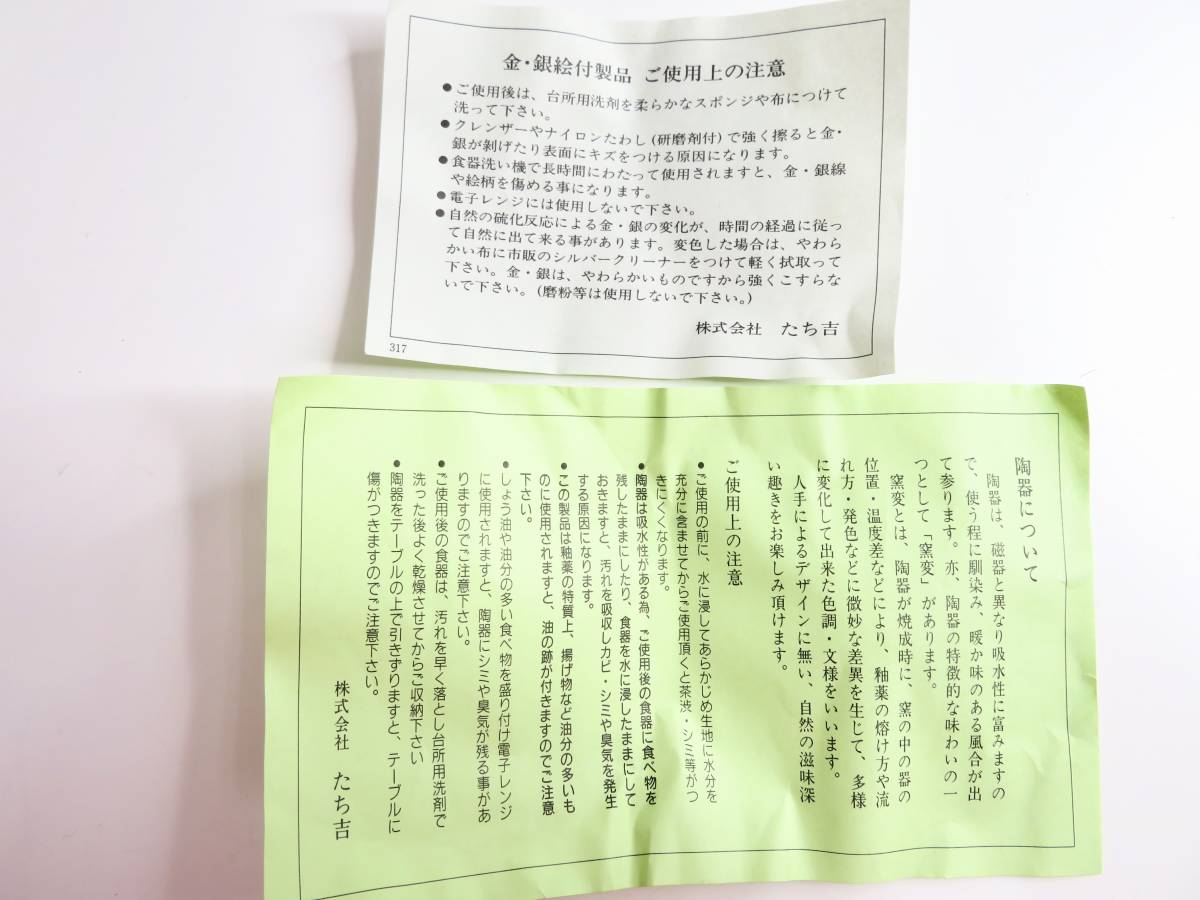 金・銀絵付製品 ご使用上の注意
●ご使用後は、台所用洗剤を柔らかなスポンジや布につけて
洗って下さい。
●クレンザーやナイロンたわし(研磨剤付)で強く擦ると金・
銀が剥げたり表面にキズをつける原因になります。
●食器洗い機で長時間にわたって使用されますと、金・銀線
や絵柄を傷める事になります。
●電子レンジには使用しないで下さい。
●自然の硫化反応による金・銀の変化が、時間の経過に従っ
て自然に出て来る事があります。変色した場合は、やわら
かい布に市販のシルバークリーナーをつけて軽く拭取って
下さい。金・銀は、やわらかいものですから強くこすらな
いで下さい。(磨粉等は使用しないで下さい。)
株式会社 たち吉
317
陶器について
陶器は、磁器と異なり吸水性に富みますの
で、使う程に馴染み、暖か味のある風合が出
て参ります。亦、陶器の特徴的な味わいの一
つとして「窯変」があります。
窯変とは、陶器が焼成時に、窯の中の器の
位置・温度差などにより、釉薬の熔け方や流
れ方・発色などに微妙な差異を生じて、多様
に変化して出来た色調・文様をいいます。
人手によるデザインに無い、自然の滋味深
い趣きをお楽しみ頂けます。
ご使用上の注意
●ご使用の前に、水に浸してあらかじめ生地に水分を
充分に含ませてからご使用頂くと茶渋・シミ等がつ
きにくくなります。
●陶器は吸水性がある為、ご使用後の食器に食べ物を
残したままにしたり、食器を水に浸したままにして
おきますと、汚れを吸収しカビ・シミや臭気を発生
する原因になります。
●この製品は釉薬の特質上、揚げ物など油分の多いも
のに使用されますと、油の跡が付きますのでご注意
下さい。
●しょう油や油分の多い食べ物を盛り付け電子レンジ
に使用されますと、陶器にシミや臭気が残る事があ
りますのでご注意下さい。
●ご使用後の食器は、汚れを早く落とし台所用洗剤で
洗った後よく乾燥させてからご収納下さい
●陶器をテーブルの上で引きずりますと、テーブルに
傷がつきますのでご注意下さい。
株式会社 たち吉